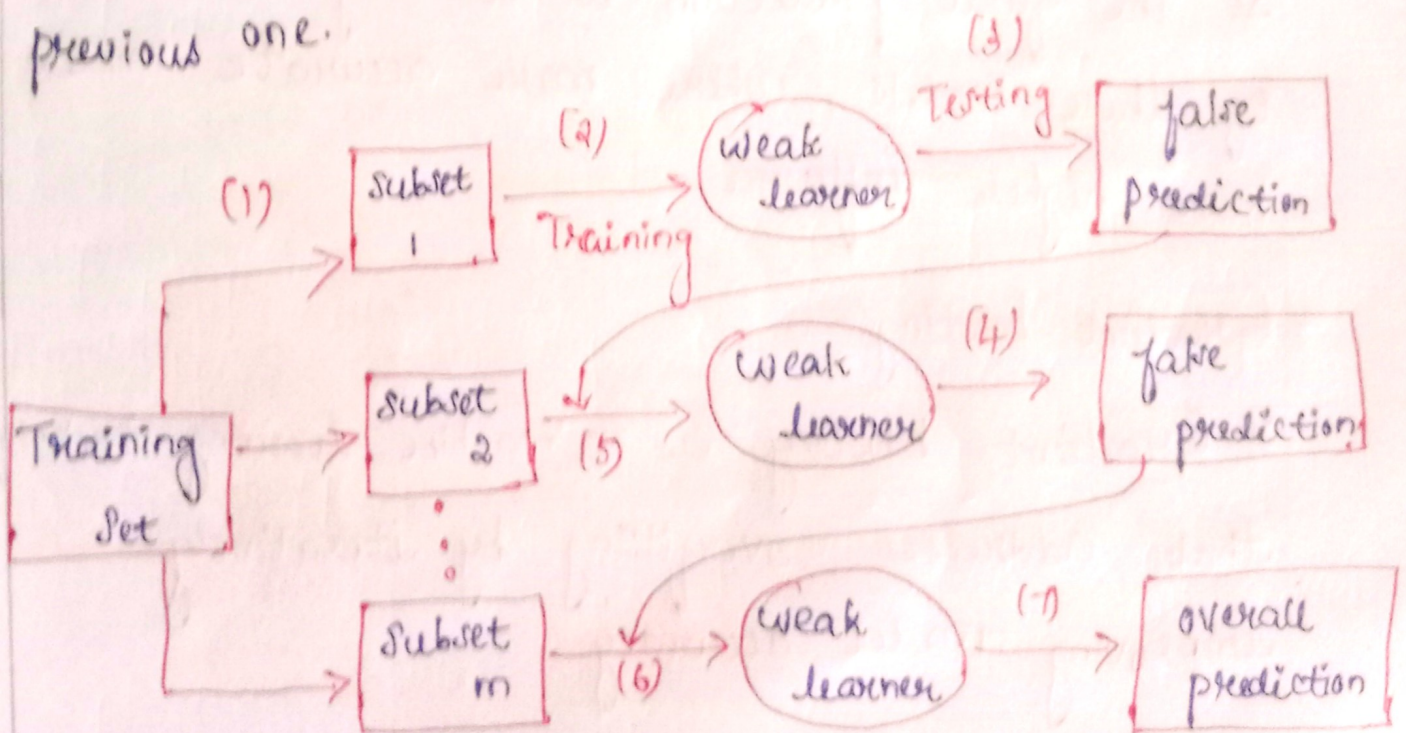 previous one.
(1)
subset
1
(2)
Training
weak
learner
(3)
Testing
false
prediction
Training
Set
subset
2
(5)
weak
learner
(4)
false
prediction
subset
m
(6)
weak
learner
(7)
overall
prediction